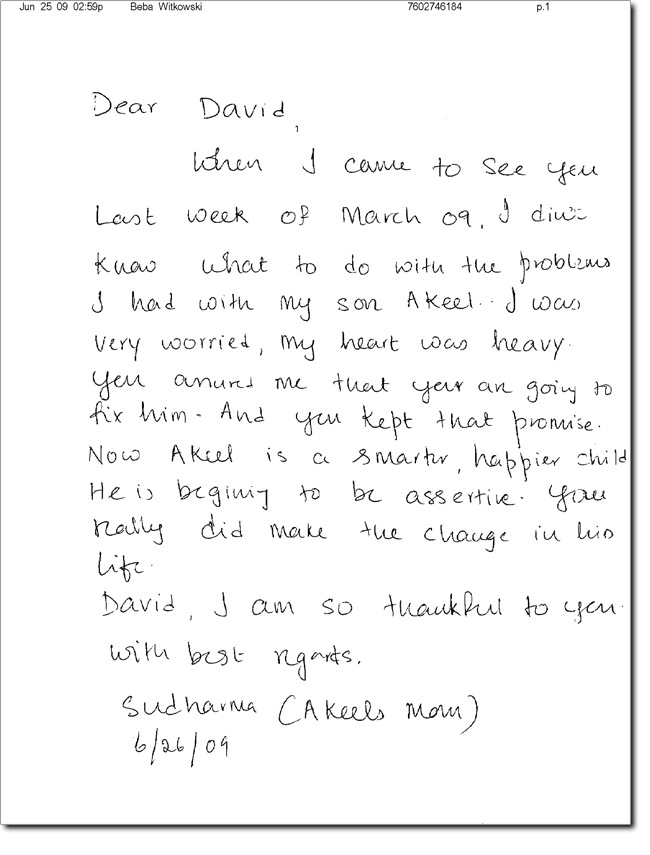 Jun 25 09 02:59p Beba Witkowski 7602746184 p.1
Dear David,
When I came to see you
Last week of March 09, I
know what to do with the problems
I had with my son Akeel. I was
very worried, my heart was heavy.
You me that you are going to
fix him. And you kept that promise.
Now Akeel is a smarter, happier child
He is begining to be assertive. You
really did make the change in his
life.
David, I am so thankful to you.
with best regards.
Sudharma (Akeels Mom)
6/26/09